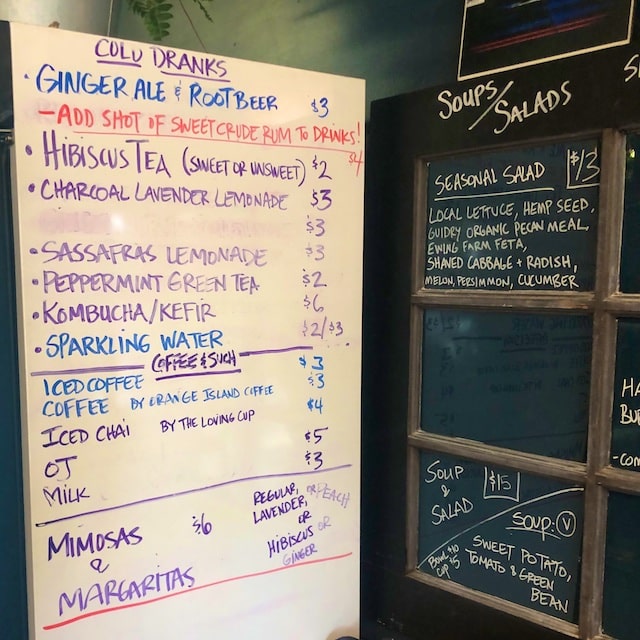 COLD DRANKS
• GINGER ALE & ROOT BEER $3
— ADD SHOT OF SWEET CRUDE RUM TO DRINKS! $4
• HIBISCUS TEA (SWEET OR UNSWEET) $2
• CHARCOAL LAVENDER LEMONADE $3
$3
• SASSAFRAS LEMONADE $3
• PEPPERMINT GREEN TEA $2
• KOMBUCHA/KEFIR $6
• SPARKLING WATER $2/$3
COFFEE & SUCH
ICED COFFEE $3
COFFEE BY ORANGE ISLAND COFFEE $3
ICED CHAI BY THE LOVING CUP $4
OJ $5
MILK $3
MIMOSAS
&
MARGARITAS
$6
REGULAR, OR PEACH
LAVENDER,
OR
HIBISCUS OR
GINGER
SOUPS/
SALADS
SEASONAL SALAD $13
LOCAL LETTUCE, HEMP SEED,
GUIDRY ORGANIC PECAN MEAL,
EWING FARM FETA,
SHAVED CABBAGE + RADISH,
MELON, PERSIMMON, CUCUMBER
SOUP
&
SALAD
$15
SOUP: V
BOWL $10
CUP $5
SWEET POTATO,
TOMATO & GREEN
BEAN
S
HA
BU
-COM